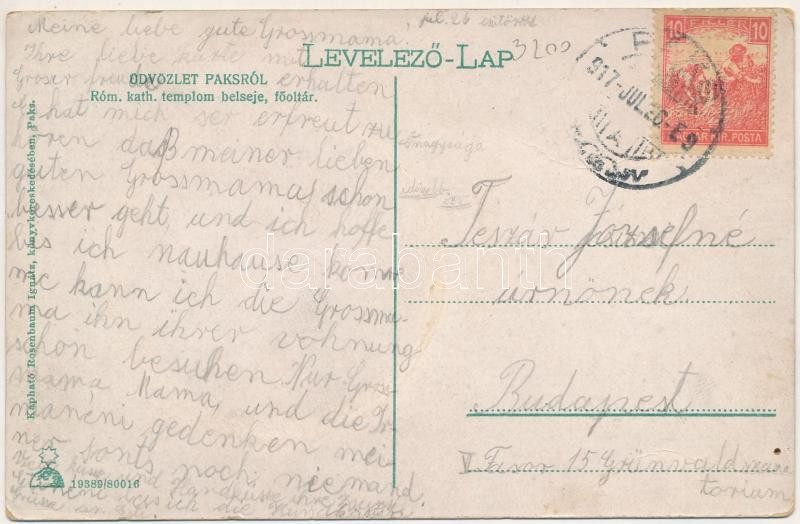 Meine liebe gute Grossmama,
Ihre liebe Karte mit
Groser erhalten
hat mich ser erfreut zu
hören daß meiner lieben
guten Grossmama schon
besser geht, und ich hoffe
bis ich nauhause komme
kann ich die Grossma-
ma ihn ihrer vohnung
schon besuhen. Nur Gross-
mama, Mama, und die Ir-
maneni gedenken mei-
ner sonts noch niemand
ich die
jul. 26
3200
LEVELEZŐ-LAP
ÜDVÖZLET PAKSRÓL
Róm. kath. templom belseje, főoltár.
Kapható Rosenbaum Ignátz, könyvkereskedésében, Paks.
19389/80016
10 FILLER 10
MAGYAR KIR. POSTA
917 JUL 26
Őnagysága
idősebb
Teszár Józsefné
úrnőnek
Budapest
V Fasor 15 Grünvald szana-
torium
darabanth